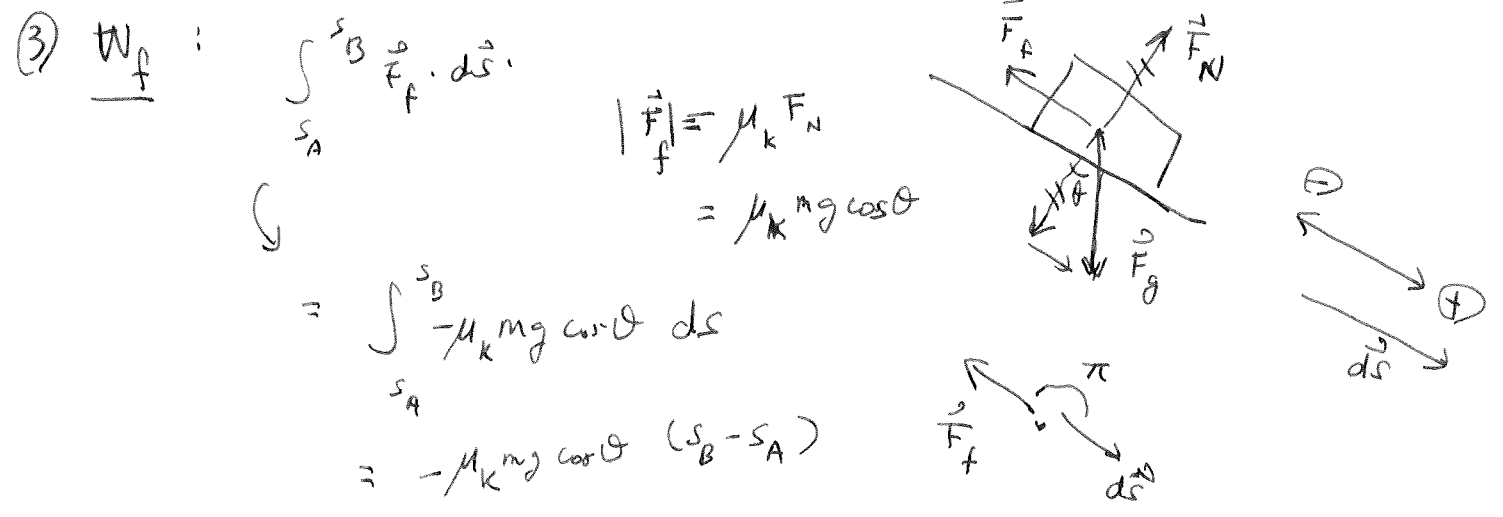 ③ W_f : ∫_{S_A}^{S_B} F⃗_f · ds⃗.
|F⃗_f| = μ_k F_N
= μ_k mg cosθ
= ∫_{S_A}^{S_B} -μ_k mg cosθ ds
= -μ_k mg cosθ (S_B - S_A)
F⃗_f
F⃗_N
θ
F⃗_g
⊖
⊕
ds⃗
π
F⃗_f
ds⃗